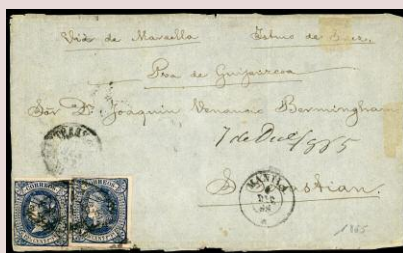 Via de Marsella Istmo de Suez,
Pra de Guipuzcoa
Sor Dn Joaquin Venancio Bermingham
7 de Dice/1865
S Sebastian.
MANILA
DIC
CORREOS
CORREOS
1865